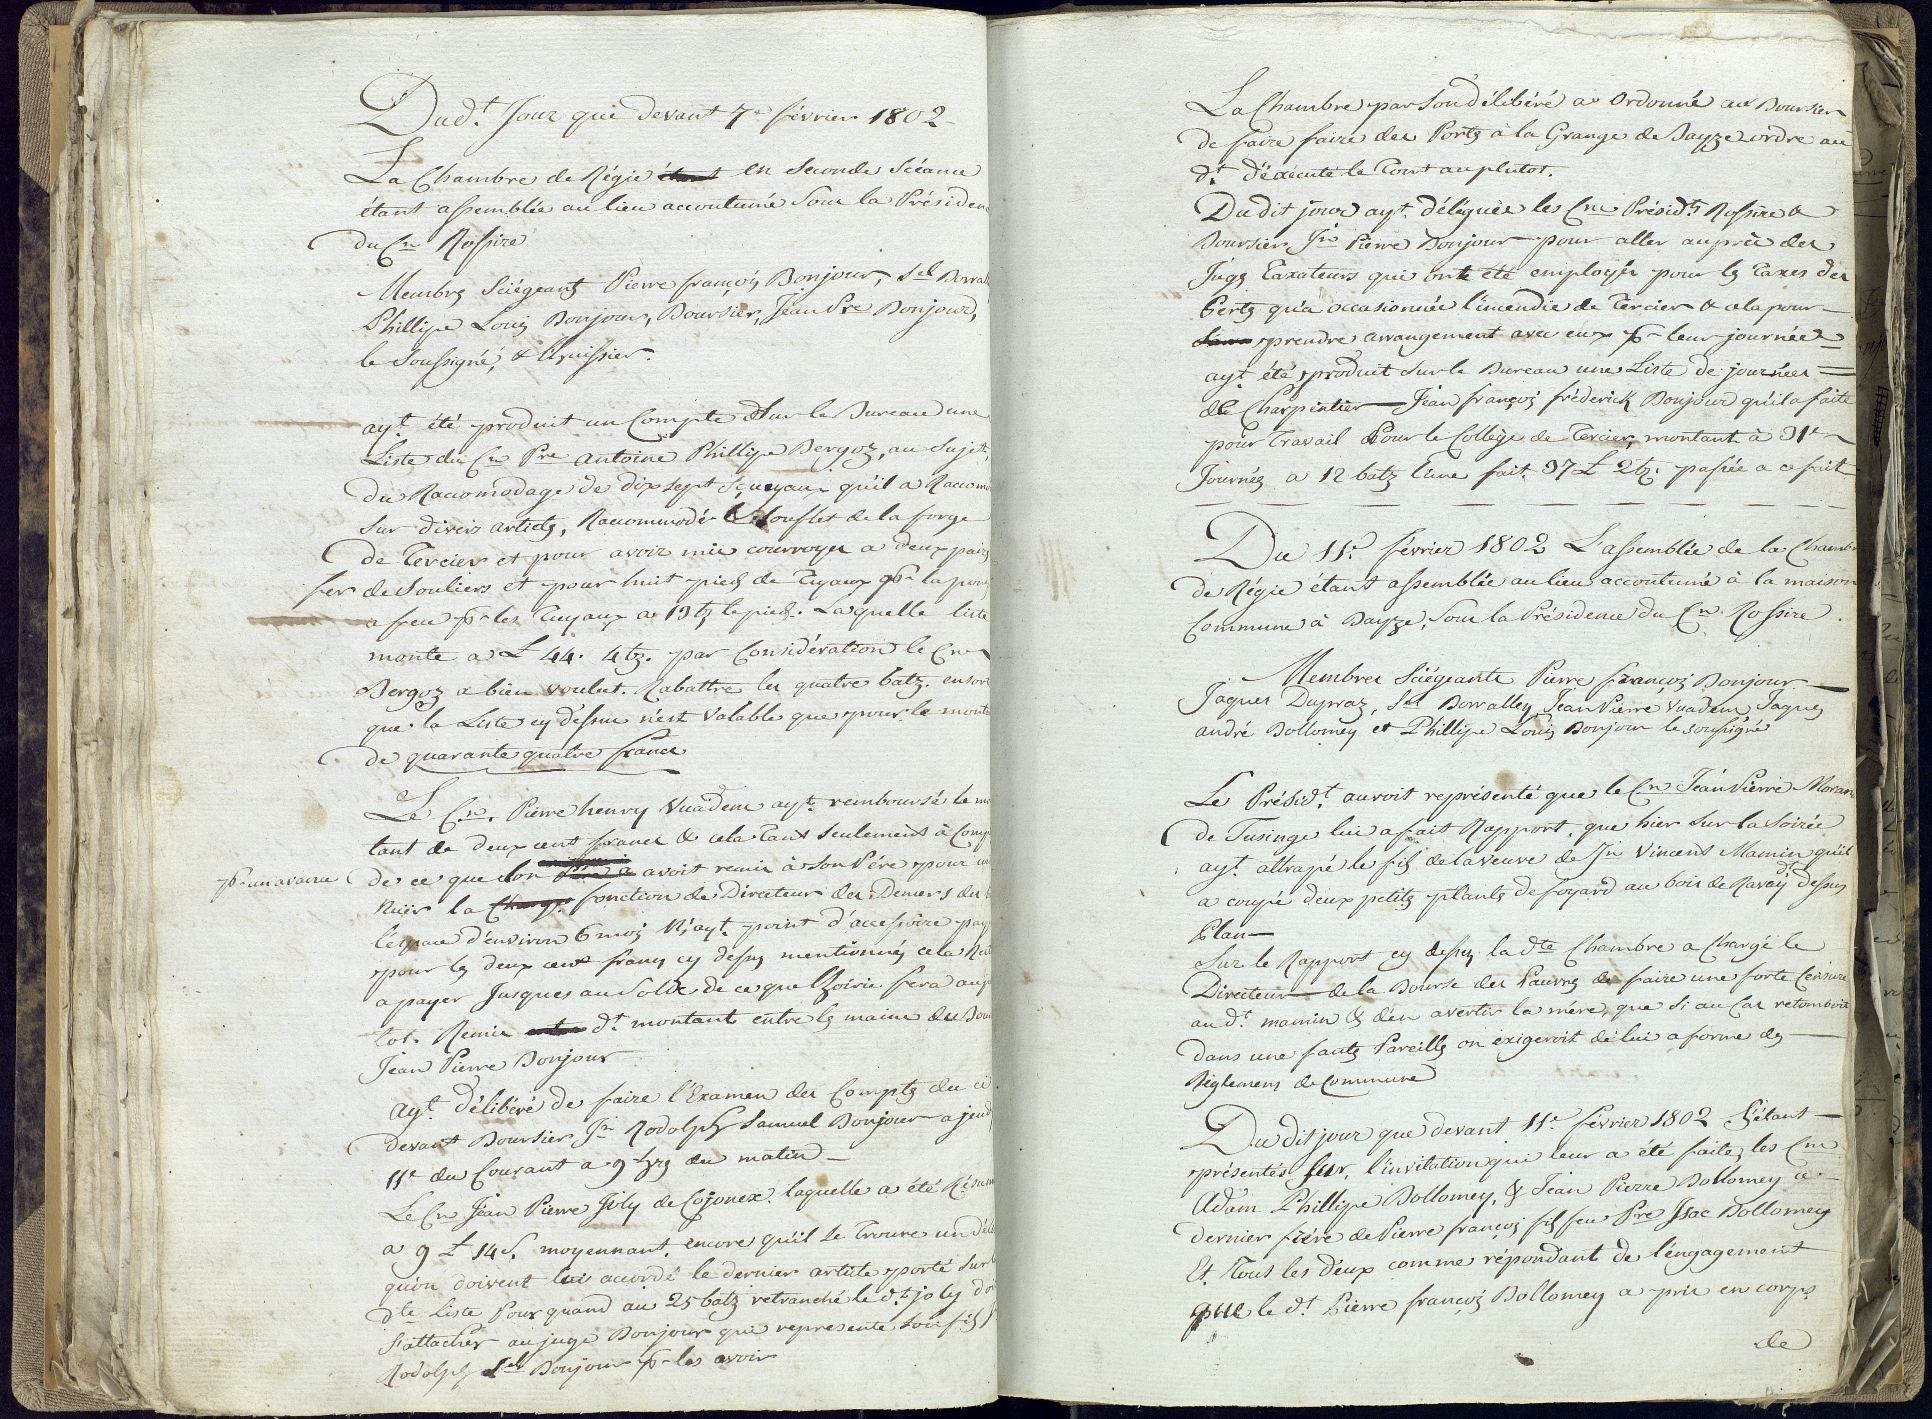 Dud.t Jour que devant 7e février 1802
La Chambre de Régie étant en seconde Scéance
étant assemblée au lieu accoutumé Sous la Présiden
du Cn Rossire
Membrs Siégeants Pierre françois Bonjour, Sel Dorvall
Phillipe Louis Bonjour, Boursier, Jean Pre Bonjour,
le Soussigné, & l'huissier.
ayt été produit un Compte sur le Bureau une
Liste du Cn Pre antoine Phillipe Bergoz, au Sujet,
du Racomodage de dix sept Seyeaux qu'il a Raccom
sur divers articls, Raccommodé le Souflet de la forge
de Tercier et pour avoir mis courroyes a deux pairs
fer de Souliers et pour huit pieds de Tuyaux pr la pom
a feu pr les Tuyaux a 19 bz le pied. Laquelle liste
monte a L 44. 4 bz. par Considération le Cn
Bergoz a bien voulut Rabattre les quatre batz. ensort
que la Liste cy dessus n'est valable que pour le monta
de quarante quatre francs
Le Cn. Pierre henry Vuadens ayt remboursé le mo
tant de deux cent francs & cela Tant seulement à Comp
pr un avance de ce que Son avoit remis à Son Père pour
la Charge fonction de Directeur des Deniers des
l'espace d'environ 6 mois N'ayt point d'accessoire pay
pour ls deux cent francs cy dessus mentionnés cela
a payer Jusques au Solde de ce que l'hoirie fera aup
tot. Remis dt montant entre ls mains du Bour
Jean Pierre Bonjour
ayt délibéré de faire l'Examen des Compts du ci
devant Boursier Jn Rodolph Samuel Bonjour a jeudy
11e du Courant a 9 hrs du matin
Le Cn Jean Pierre Joly de Cojonex laquelle a été Résum
a 9 L 14 S. moyennant, encore qu'il se Trouve un
qu'on doivent lui acordé le dernier article porté sur
dte Liste Pour quand au 25 batz retranché le dt joly doi
s'attacher au juge Bonjour qui represente son fils
Rodolph Sel Bonjour pr les avoir
La Chambre par Son délibéré a Ordonné au Boursier
de faire faire des Ports à la Grange de Bayze ordre au
dt d'éxecuté le Tout au plutot.
Du dit jour ayt déléguée les Cns Présidts Rossire &
Boursier Jn Pierre Bonjour pour aller auprès des
Jugs Taxateurs qui ont été employés pour ls Taxes des
Perts qu'a occasionnée l'incendie de Tercier & cela pour
prendre arrangement avec eux pr leur journées
ayt été produit sur le Bureau une Liste de journées
de Charpentier Jean françois fréderick Bonjour qu'il a faite
pour Travail Pour le Collège de Tercier, montant à 31e
Journés a 12 batz l'une fait. 37 L 2 bz. passée a ce fait
Du 11e février 1802 L'assemblée de la Chamb
de Régie étant assemblée au lieu accoutumé à la maison
Commune à Bayze, Sous la Présidence du Cn Rossire.
Membres Siégeants Pierre françois Bonjour
Jaques Dupraz, Sel Dorvalley Jean Pierre Vuadens Jaques
andré Dollomey et Phillipe Louis Bonjour le soussigné
Le Présidt auroit représenté que le Cn Jean Pierre Moran
de Tusinge lui a fait Rapport, que hier sur la Soirée
ayt attrapé le fils de la veuve de Jn Vincent Mamin qu'il
a coupé deux petits plants de foyard au bois de Ravey dt dessus
Plan
Sur le Rapport cy dessus la dte Chambre a Chargé le
Directeur de la Bourse des Pauvrs de faire une forte Censure
au dt mamin & d'en avertir la mère, que Si au Cas retomboit
dans une faute Pareille on exigeroit de lui a forme des
Réglemens de Commune
Du dit jour que devant 11e février 1802 S'étant
présentés sur, l'invitation qui leur a été faite, les Cns
Adam Phillipe Dollomey, & Jean Pierre Dollomey ce
dernier frère de Pierre françois fils feu Pre Isac Dollomey
Et Tous les deux comme répondant de l'engagement
que le dt Pierre françois Dollomey a pris en corps
de